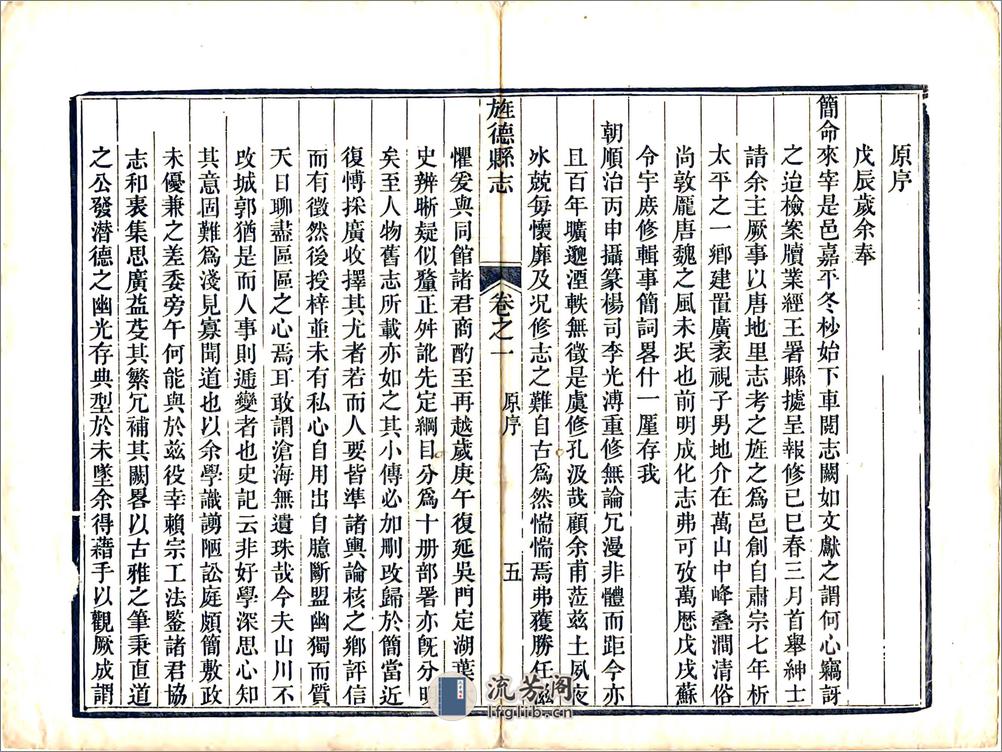 原序
戊辰歲余奉
簡命來宰是邑嘉平冬杪始下車閱志闕如文獻之謂何心竊訝
之迨檢案牘業經王署縣據呈報修己巳春三月首舉紳士
請余主厥事以唐地里志考之旌之爲邑創自肅宗七年析
太平之一鄉建置廣袤視子男地介在萬山中峰叠澗清俗
尚敦龐唐魏之風未泯也前明成化志弗可攷萬歷戊戌蘇
令宇庶修輯事簡詞畧什一厪存我
朝順治丙申攝篆楊司李光溥重修無論冗漫非體而距今亦
且百年曠邈湮軼無徵是虞修孔汲哉顧余甫蒞兹土夙夜
氷兢每懷靡及况修志之難自古爲然惴惴焉弗獲勝任滋
旌德縣志
卷之一
原序
五
懼爰與同館諸君商酌至再越歲庚午復延吳門定湖葉
史辨晰疑似釐正舛訛先定綱目分爲十册部署亦旣分明
矣至人物舊志所載亦如之其小傳必加刪改歸於簡當近
復愽採廣收擇其尤者若而人要皆準諸輿論核之鄉評信
而有徵然後授梓並未有私心自用出自臆斷盟幽獨而質
天日聊盡區區之心焉耳敢謂滄海無遺珠哉今夫山川不
攻城郭猶是而人事則遞變者也史記云非好學深思心知
其意固難爲淺見寡聞道也以余學識謭陋訟庭頗簡敷政
未優兼之差委旁午何能與於兹役幸賴宗工法鑒諸君協
志和衷集思廣益芟其繁冗補其闕畧以古雅之筆秉直道
之公發潜德之幽光存典型於未墜余得藉手以觀厥成謂
流芳阁
lfglib.cn